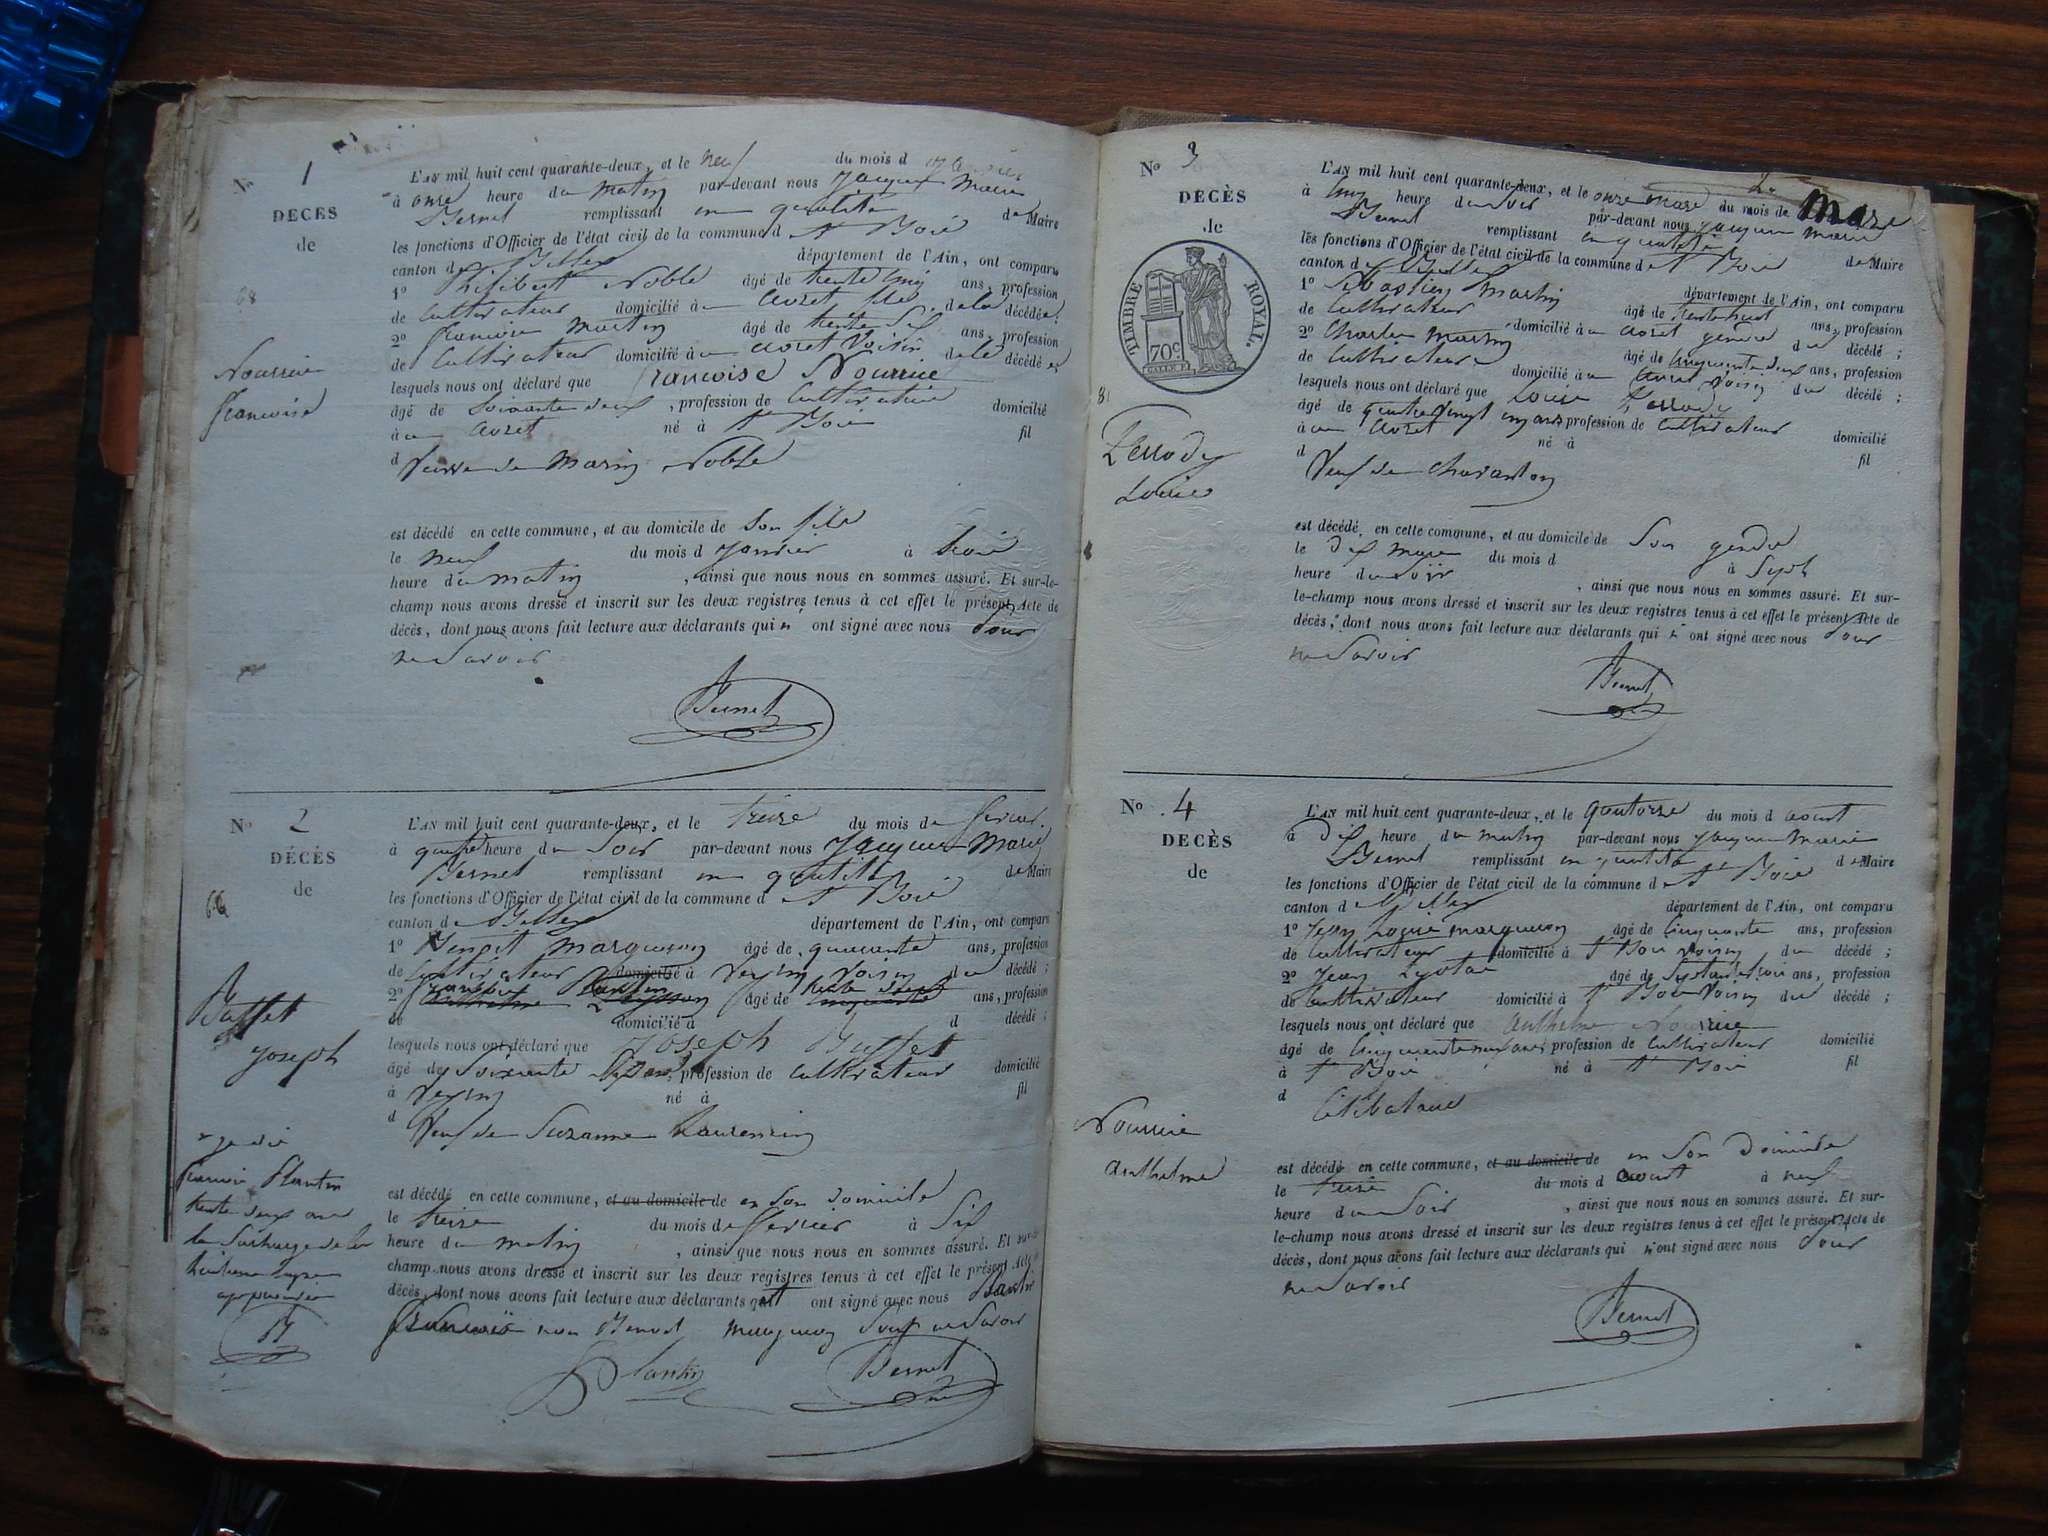 N° 1
DECES
de
68
Nourrice
francoise
L'AN mil huit cent quarante-deux, et le neuf du mois d janvier
à onze heure du matin par-devant nous jacques marie
Bernet remplissant en qualité de Maire
les fonctions d'Officier de l'état civil de la commune d St Bois
canton de Belley département de l'Ain, ont comparu
1° Philibert Noble âgé de trente cinq ans, profession
de Cultivateur domicilié à avret fils de la décédée;
2° francois martin âgé de trente six ans, profession
de Cultivateur domicilié à avret Voisin de la décédée
lesquels nous ont déclaré que francoise Nourrice
âgé de soixante deux, profession de Cultivatrice domicilié
à avret né à St Bois fil
d Veuve de marin Noble
est décédé en cette commune, et au domicile de son fils
le neuf du mois d janvier à trois
heure du matin, ainsi que nous nous en sommes assuré. Et sur-le-
champ nous avons dressé et inscrit sur les deux registres tenus à cet effet le présent Acte de
décès, dont nous avons fait lecture aux déclarants qui n ont signé avec nous pour
ne savoir
Bernet
N° 2
DÉCÈS
de
66
Buffet
joseph
je dis
francois Plantin
trente deux ans
la surcharge de la
approuvée
B
L'AN mil huit cent quarante-deux, et le treize du mois de fevrier
à quatre heure du soir par-devant nous jacques marie
Bernet remplissant en qualité de Maire
les fonctions d'Officier de l'état civil de la commune d St Bois
canton de Belley département de l'Ain, ont comparu
1° Benoit marqueron âgé de quarante ans, profession
de Cultivateur domicilié à veyrin Voisin du décédé;
2° francois Plantin âgé de trente deux ans, profession
de domicilié à d décédé;
lesquels nous ont déclaré que joseph Buffet
âgé de soixante, profession de Cultivateur domicilié
à veyrin né à fil
d Veuf de Suzanne Laurencin
est décédé en cette commune, et au domicile de en son domicile
le treize du mois de fevrier à six
heure du matin, ainsi que nous nous en sommes assuré. Et sur-le-
champ nous avons dressé et inscrit sur les deux registres tenus à cet effet le présent Acte
décès, dont nous avons fait lecture aux déclarants qui ont signé avec nous Plantin
francois non Benoit marqueron pour ne savoir
Plantin Bernet
N° 3
DECÈS
de
TIMBRE ROYAL.
70c
81
Perrody
Louis
L'AN mil huit cent quarante-deux, et le onze mars du mois de mars
à cinq heure du soir par-devant nous jacques marie
Bernet remplissant en qualité de Maire
les fonctions d'Officier de l'état civil de la commune d St Bois
canton de Belley département de l'Ain, ont comparu
1° Sébastien martin âgé de trente huit ans, profession
de Cultivateur domicilié à avret gendre du décédé;
2° Charles martin âgé de cinquante deux ans, profession
de Cultivateur domicilié à avret Voisin du décédé;
lesquels nous ont déclaré que Louis Perrody
âgé de quatre vingt un ans profession de Cultivateur domicilié
à avret né à fil
d Veuf de
est décédé en cette commune, et au domicile de son gendre
le dix mars du mois d à sept
heure du soir, ainsi que nous nous en sommes assuré. Et sur-
le-champ nous avons dressé et inscrit sur les deux registres tenus à cet effet le présent Acte de
décès, dont nous avons fait lecture aux déclarants qui n ont signé avec nous pour
ne savoir
Bernet
N° 4
DECÈS
de
Nourrice
anthelme
L'AN mil huit cent quarante-deux, et le quatorze du mois d aout
à dix heure du matin par-devant nous jacques marie
Bernet remplissant en qualité de Maire
les fonctions d'Officier de l'état civil de la commune d St Bois
canton d Belley département de l'Ain, ont comparu
1° jean Louis marqueron âgé de cinquante ans, profession
de Cultivateur domicilié à St Bois Voisin du décédé;
2° jean âgé de septante trois ans, profession
de Cultivateur domicilié à St Bois Voisin du décédé;
lesquels nous ont déclaré que anthelme Nourrice
âgé de cinquante neuf ans, profession de Cultivateur domicilié
à St Bois né à St Bois fil
d Célibataire
est décédé en cette commune, et au domicile de en son domicile
le treize du mois d aout à neuf
heure du soir, ainsi que nous nous en sommes assuré. Et sur-
le-champ nous avons dressé et inscrit sur les deux registres tenus à cet effet le présent Acte de
décès, dont nous avons fait lecture aux déclarants qui n ont signé avec nous pour
ne savoir
Bernet